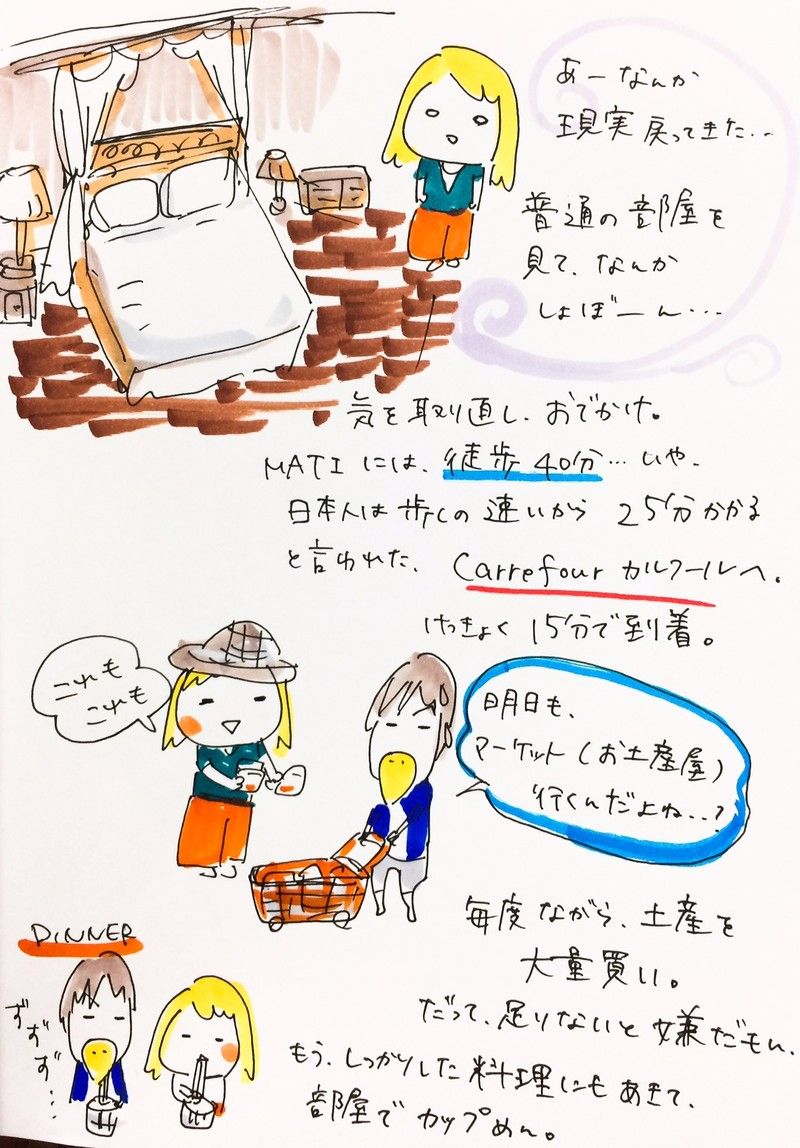 あーなんか
現実戻ってきた...
普通の部屋を
見て、なんか
しょぼーん...
気を取り直し、おでかけ。
MATIには、徒歩40分...いや、
日本人は歩くの速いから 25分かかる
と言われた、Carrefour カルフールへ。
けっきょく 15分で到着。
これも
これも
明日も、
マーケット(お土産屋)
行くんだよね...?
毎度ながら、土産を
大量買い。
だって、足りないと嫌だもん。
DINNER
ずずず...
もう、しっかりした料理にもあきて、
部屋でカップめん。